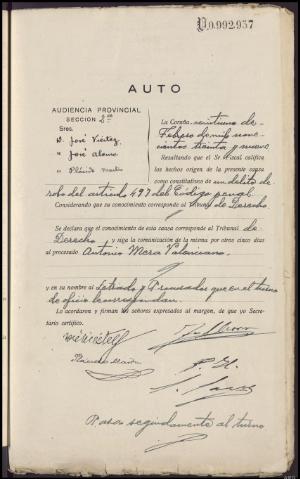 P.0.992.957
AUTO
AUDIENCIA PROVINCIAL
SECCIÓN 2ª
Sres.
D. José Viéitez
" José Alonso
" Plácido Martín
La Coruña veintiuno de
Febrero de mil nove-
cientos treinta y nueve
Resultando que el Sr. Fiscal califica
los hechos origen de la presente causa
como constitutivos de un delito de
robo del artículo 497 del Código penal
Considerando que su conocimiento corresponde al Tribunal de Derecho.
Se declara que el conocimiento de esta causa corresponde al Tribunal de
Derecho y siga la comunicación de la misma por otros cinco días
al procesado Antonio Mera
y en su nombre al Letrado y Procurador que en el turno
de oficio le correspondan.
Lo acordaron y firman los señores expresados al margen, de que yo Secre-
tario certifico.
seguidamente al turno